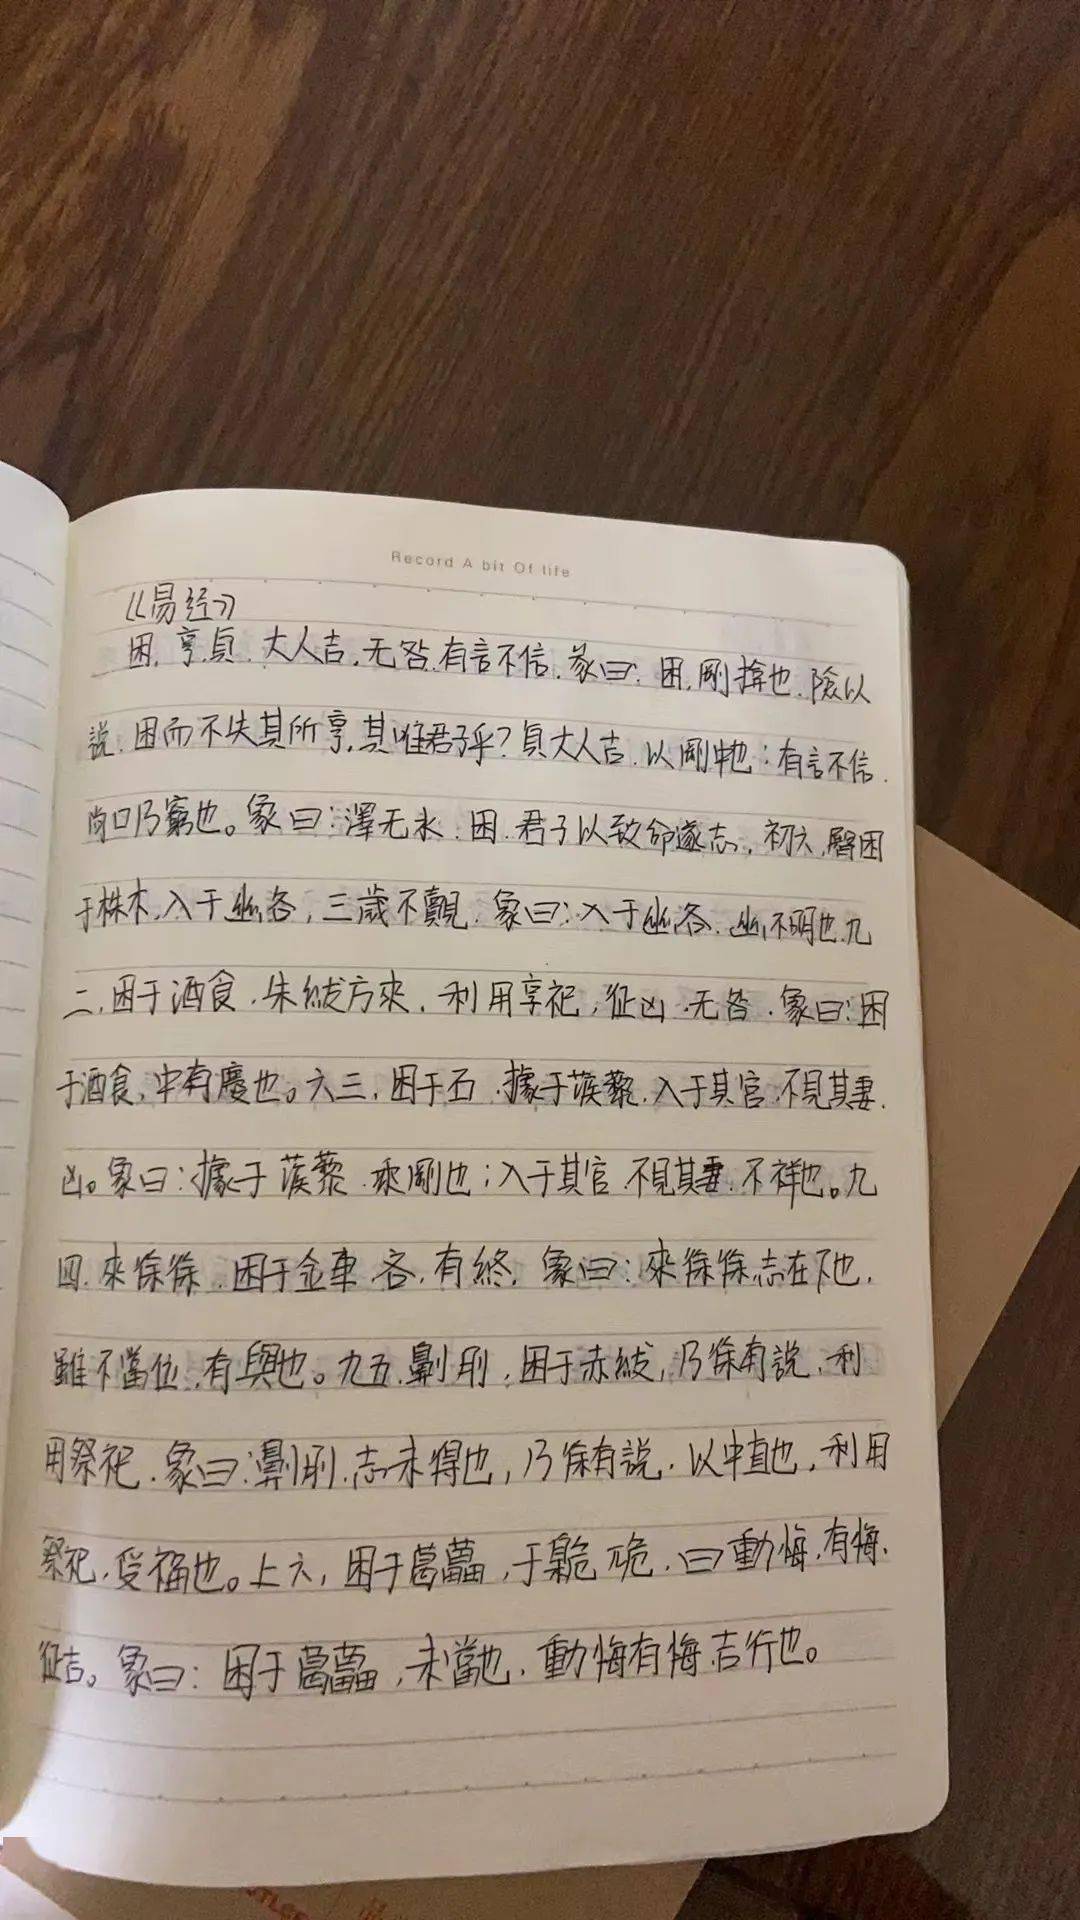 Record A bit Of life
《易经》
困，亨，貞，大人吉，无咎，有言不信，彖曰：困，剛揜也，險以
說，困而不失其所亨，其唯君子乎？貞大人吉，以剛中也；有言不信，
尚口乃窮也。象曰：澤无水，困，君子以致命遂志，初六，臀困
于株木，入于幽谷，三歲不覿，象曰：入于幽谷，幽不明也，九
二，困于酒食，朱紱方來，利用享祀，征凶，无咎，象曰：困
于酒食，中有慶也。六三，困于石，據于蒺藜，入于其宮，不見其妻，
凶。象曰：據于蒺藜，乘剛也；入于其宮，不見其妻，不祥也。九
四，來徐徐，困于金車，吝，有終，象曰：來徐徐，志在下也，
雖不當位，有與也。九五，劓刖，困于赤紱，乃徐有說，利
用祭祀，象曰：劓刖，志未得也，乃徐有說，以中直也，利用
祭祀，受福也。上六，困于葛藟，于臲卼，曰動悔，有悔，
征吉。象曰：困于葛藟，未當也，動悔有悔，吉行也。